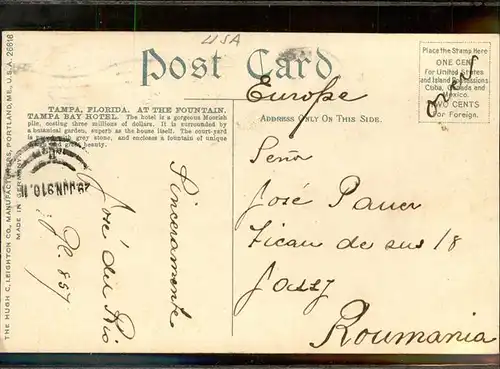 USA
Post Card
Place the Stamp Here
ONE CENT
For United States
and Island Possessions
Cuba, Canada and
Mexico.
TWO CENTS
For Foreign.
TAMPA, FLORIDA. AT THE FOUNTAIN.
TAMPA BAY HOTEL. The hotel is a gorgeous Moorish
pile, costing three millions of dollars. It is surrounded by
a botanical garden, superb as the house itself. The court-yard
is paved with grey stone, and encloses a fountain of unique
and great beauty.
ADDRESS ONLY ON THIS SIDE.
Europe
Señor
José Pauer
Ticau de sus 18
Jassy
Roumania
Sinceramente
José del Rio
857
29 JUN 910
THE HUGH C. LEIGHTON CO., MANUFACTURERS, PORTLAND, ME., U.S.A. 26618
MADE IN GERMANY